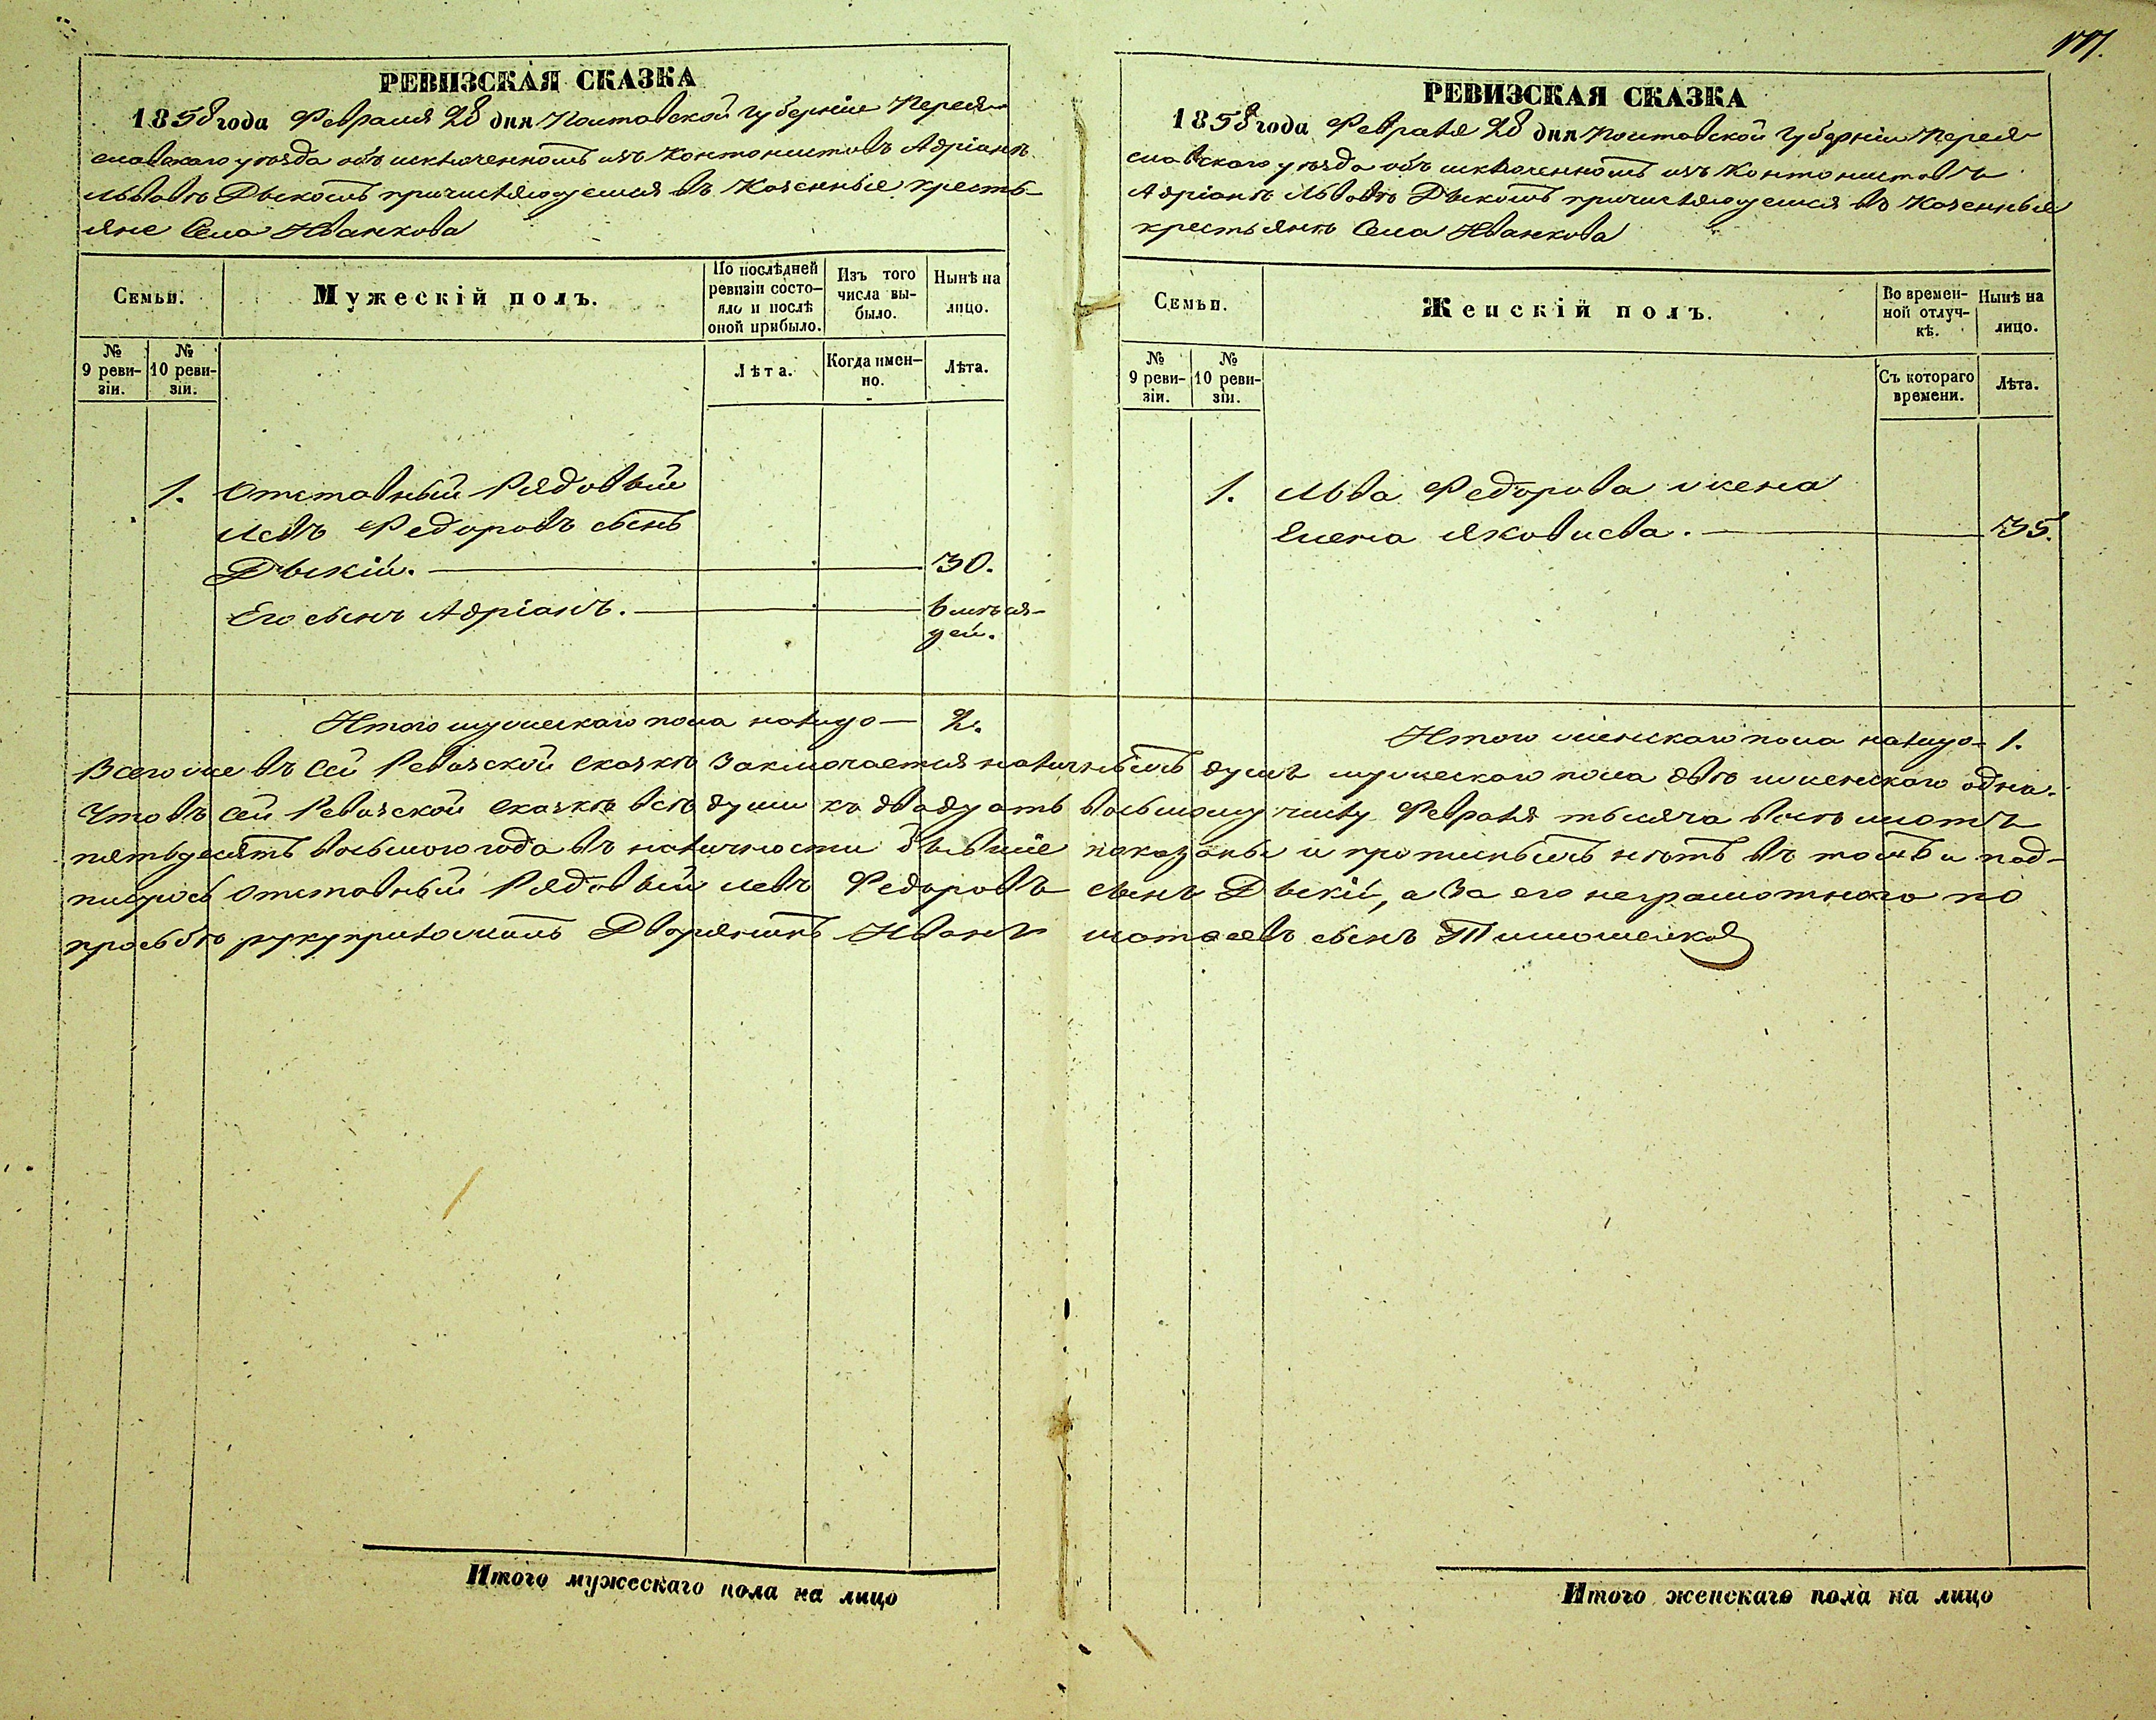 177.
РЕВИЗСКАЯ СКАЗКА
1858 года Февраля 28 дня Полтавской губерніи Перея-
славскаго уѣзда объ исключенномъ изъ Кантонистовъ Адріанѣ
Львовѣ Дыкомъ причисляющемся въ Казенные кресть-
яне Села Иванкова
Семьи.
Мужескій полъ.
По послѣдней ревизіи состо-яло и послѣ оной прибыло.
Изъ того числа вы-было.
Нынѣ на лицо.
№ 9 реви-зіи.
№ 10 реви-зіи.
Лѣта.
Когда имен-но.
Лѣта.
1. Отставный Рядовый
Левъ Федоровъ сынъ
Дыкій. 30.
Его сынъ Адріанъ. 6 мѣся-
цей.
Итого мужескаго пола налицо — 2.
РЕВИЗСКАЯ СКАЗКА
1858 года Февраля 28 дня Полтавской губерніи Перея-
славскаго уѣзда объ исключенномъ изъ Кантонистовъ
Адріанѣ Львовѣ Дыкомъ причисляющемся въ Казенные
крестьяне Села Иванкова
Семьи.
Женскій полъ.
Во времен-ной отлуч-кѣ.
Нынѣ на лицо.
№ 9 реви-зіи.
№ 10 реви-зіи.
Съ котораго времени.
Лѣта.
1. Льва Федорова жена
Елена Яковлева. 35.
Итого женскаго пола налицо — 1.
Всего же въ сей Ревизской сказкѣ заключается наличныхъ душъ мужескаго пола двѣ и женскаго одна.
Что въ сей Ревизской сказкѣ всѣ души къ двадцать восьмому числу Февраля тысяча восемьсотъ
пятьдесятъ восьмого года въ наличности бывшіе показаны и прописныхъ нѣтъ въ томъ и под-
писуюсь отставный Рядовый Левъ Федоровъ сынъ Дыкій, а За его неграмотного по
прозьбѣ руку приложилъ Дворянинъ Иванъ сынъ Тимошенков
Итого мужескаго пола на лицо
Итого женскаго пола на лицо